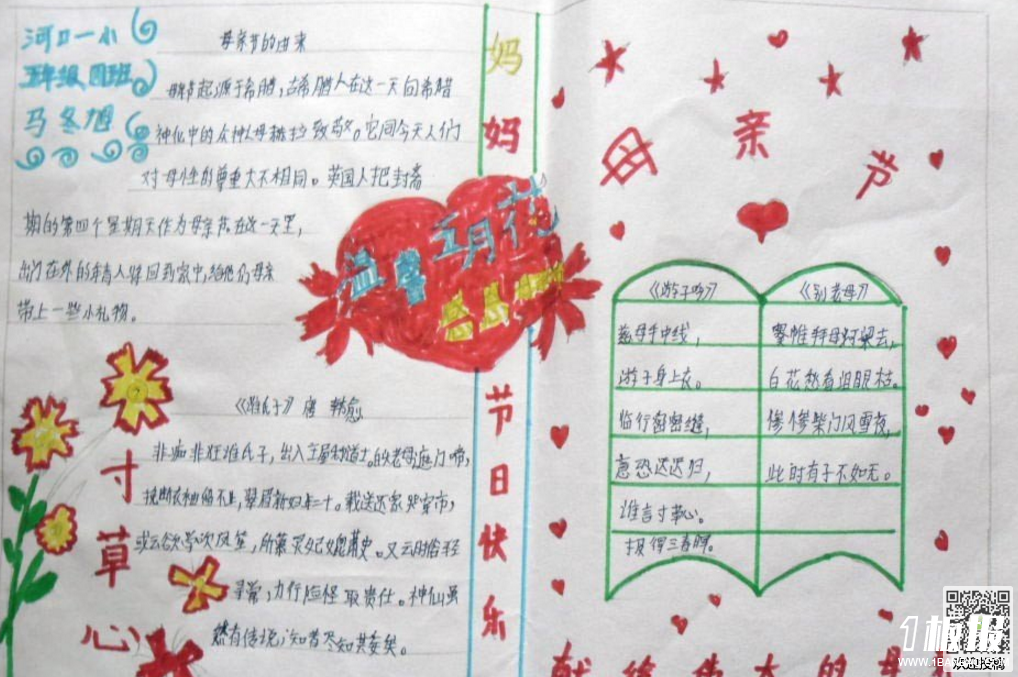 河口一小
五年级四班
马冬旭
母亲节的由来
母亲节起源于希腊,古希腊人在这一天向希腊
神化中的众神之母赫拉致敬。它同今天人们
对母性的尊重大不相同。英国人把封斋
期的第四个星期天作为母亲节。在这一天里,
出门在外的年青人将回到家中,给他们母亲
带上一些小礼物。
《谁氏子》唐 韩愈
非痴非狂谁氏子,出入王屋称道士。白头老母遮门啼,
挽断衫袖留不止,翠眉新妇年二十。载送还家哭穿市,
或云欲学吹凤笙,所慕灵妃媲萧史。又云时俗轻
寻常,力行险怪取贵仕。神仙虽
然有传说,知者尽知其妄矣。
寸草心
妈妈
节日快乐
温馨五月花
母亲节
《游子吟》
慈母手中线,
游子身上衣。
临行密密缝,
意恐迟迟归,
谁言寸草心。
报得三春晖。
《别老母》
搴帷拜母河梁去,
白花愁看泪眼枯。
惨惨柴门风雪夜,
此时有子不如无。
献给伟大的母
1板报
WWW.1BANBAO.COM
欢迎投稿